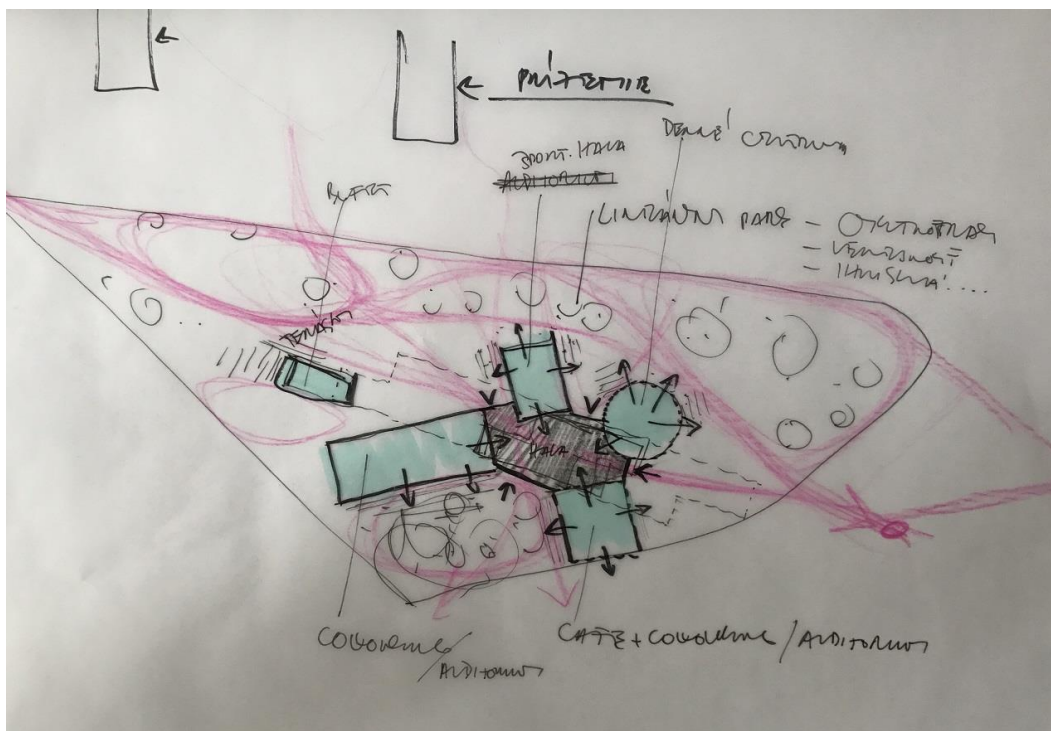 PRÍZEMIE
DENNÉ CENTRUM
ŠPORT. HALA
AUDITORIUM
BUFET
LINEÁRNY PARK –
– VEREJNOSŤ
– IHRISKÁ....
TERASA
HALA
COWORKING/
AUDITORIUM
CAFFE + COWORKING / AUDITORIUM